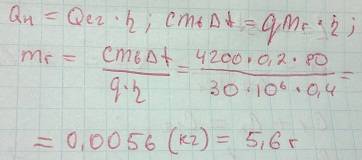 Qп = Qсг · η ; cmвΔt = qmг · η ;
mг = cmвΔt / q·η = 4200·0,2·80 / 30·10⁶·0,4 =
= 0,0056 (кг) = 5,6г